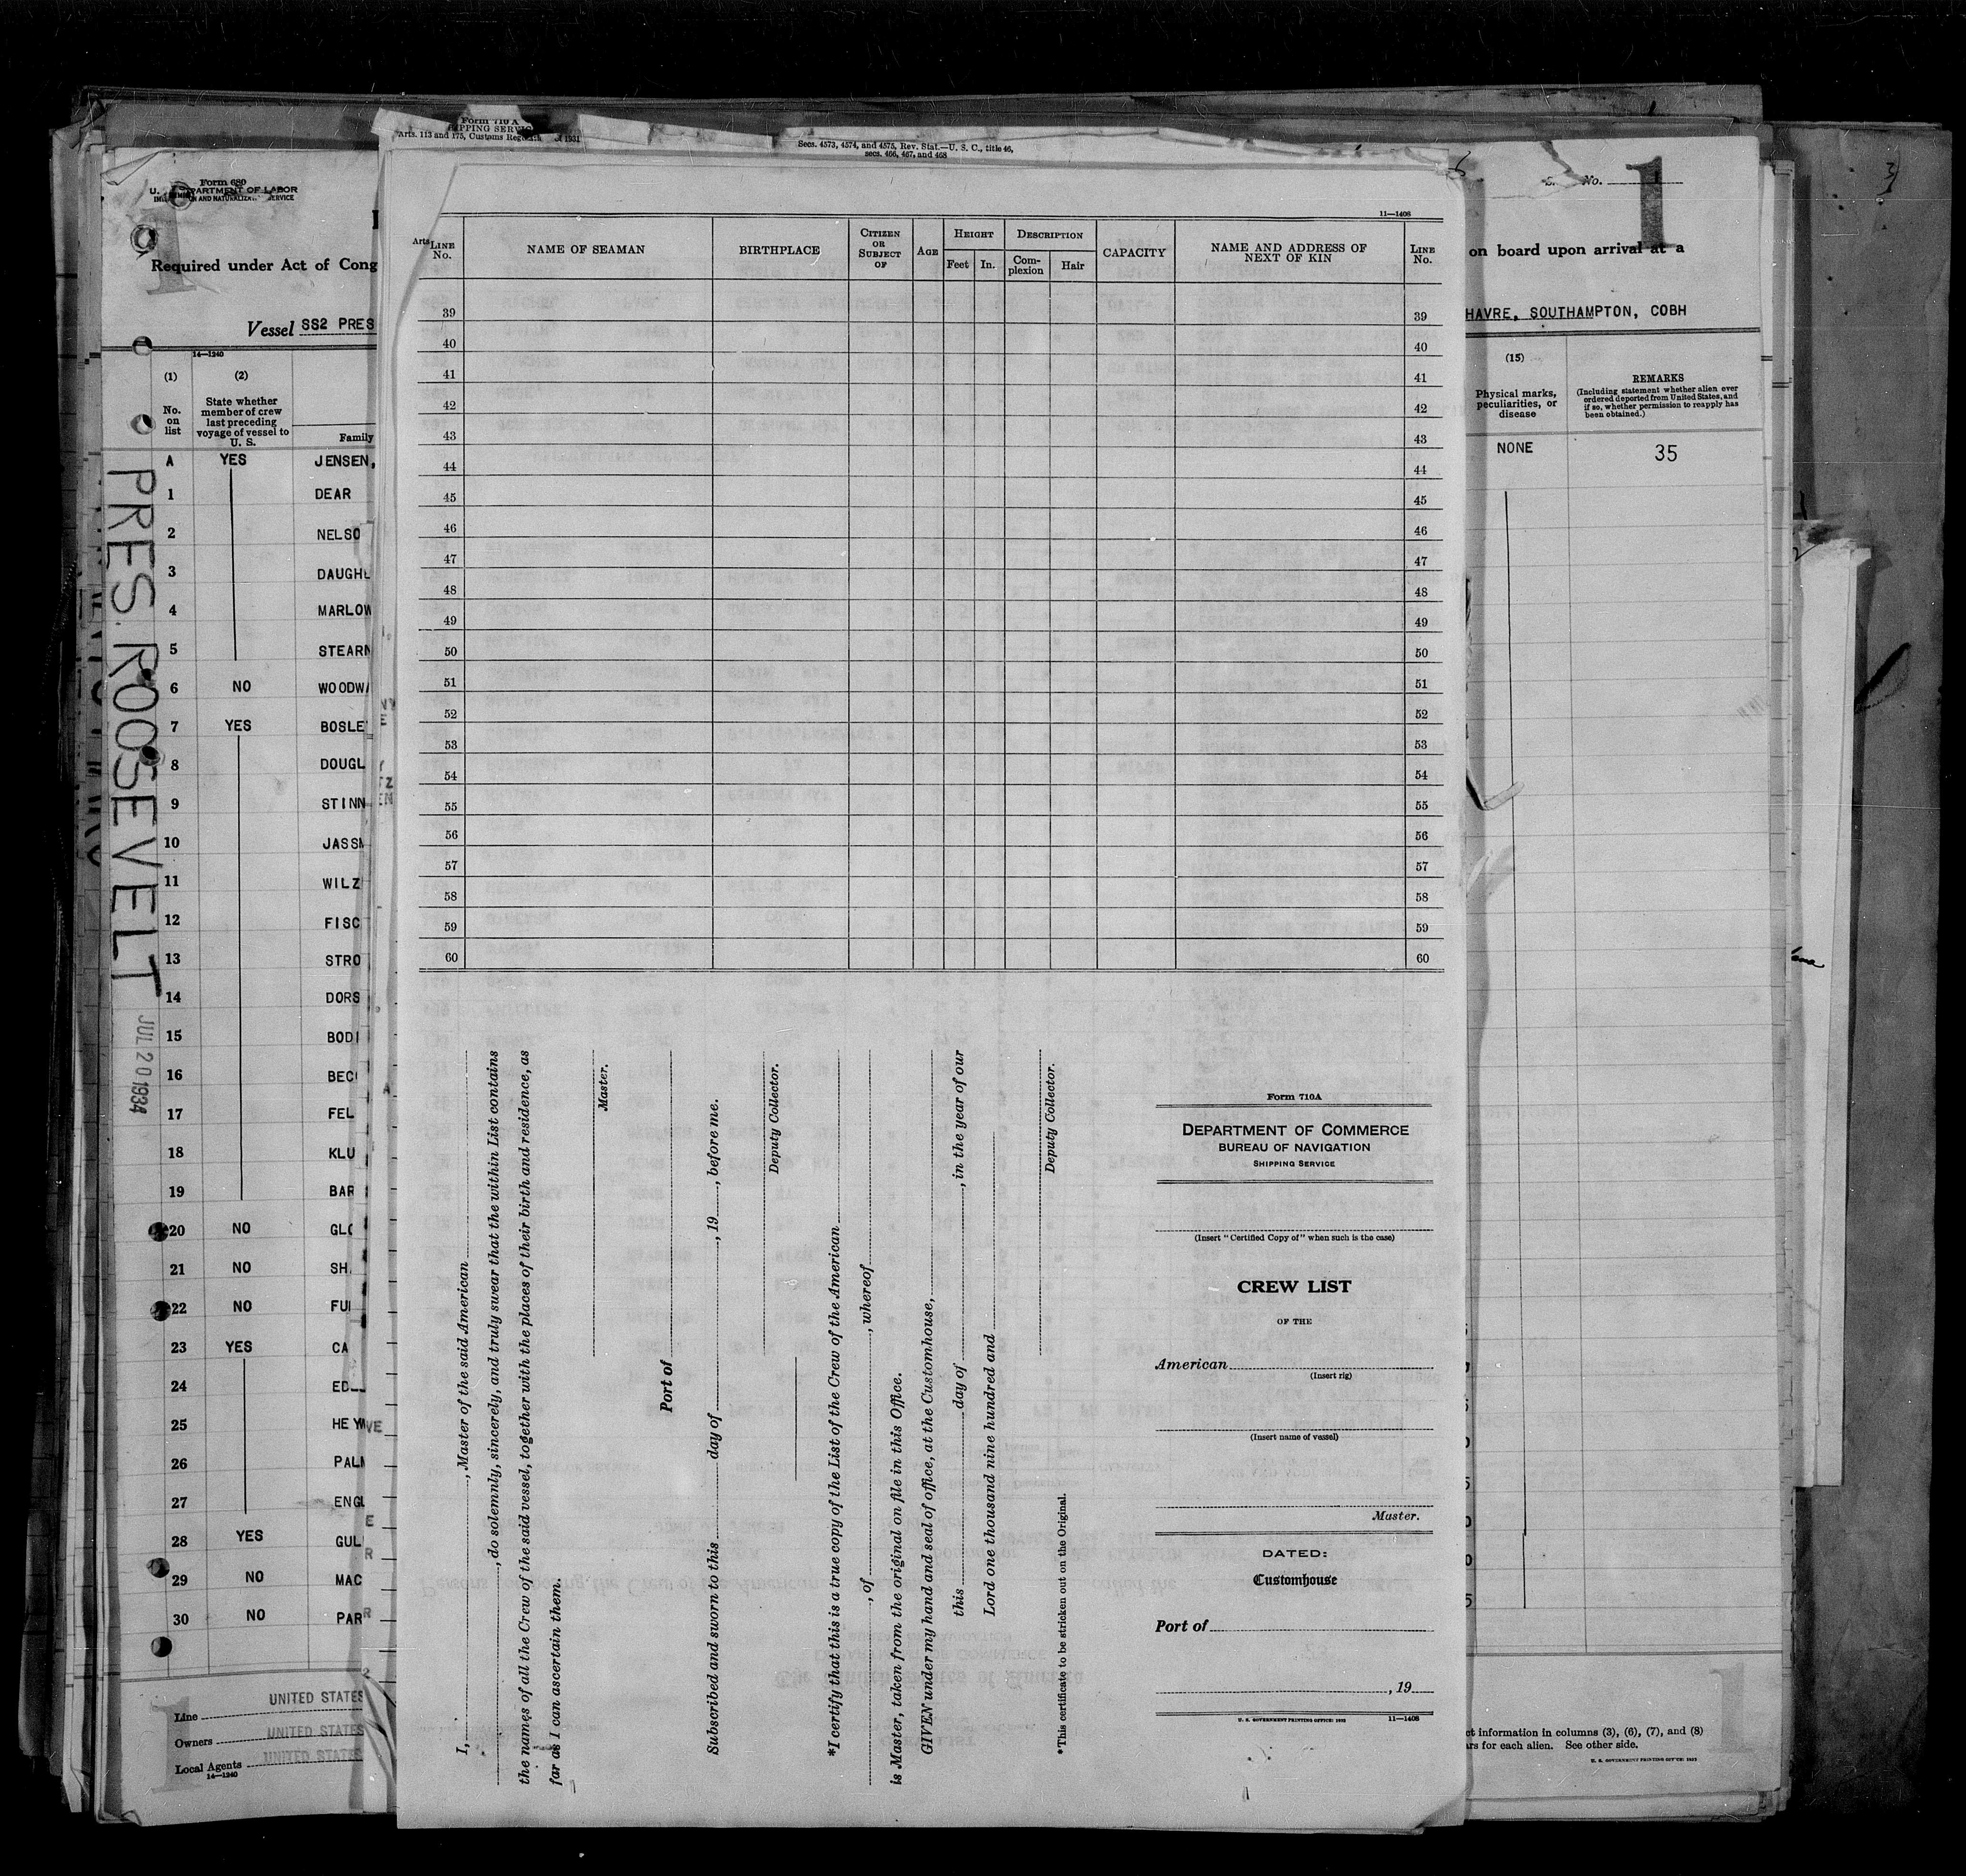 Form 710 A
Arts. 113 and 175, Customs
of 1931
Secs. 4573, 4574, and 4575, Rev. Stat.—U. S. C., title 46,
secs. 466, 467, and 468
Form 680
DEPARTMENT OF LABOR
AND NATURALIZATION SERVICE
No. 1
1
3
Required under Act of Cong
on board upon arrival at a
Vessel SS2 PRES
HAVRE, SOUTHAMPTON, COBH
14—1240
(1)
No.
on
list
(2)
State whether
member of crew
last preceding
voyage of vessel to
U. S.
Family
A YES JENSEN,
1 DEAR
2 NELSO
3 DAUGH
4 MARLOW
5 STEARN
6 NO WOODWA
7 YES BOSLE
8 DOUGL
9 STINN
10 JASSM
11 WILZ
12 FISC
13 STRO
14 DORS
15 BODI
16 BEC
17 FEL
18 KLU
19 BAR
20 NO GLO
21 NO SH
22 NO FU
23 YES CA
24 ED
25 HEYM
26 PAL
27 ENGL
28 YES GUL
29 NO MAC
30 NO PAR
PRES. ROOSEVELT
JUL 20 1934
Line UNITED STATES
Owners UNITED STATES
Local Agents UNITED STATES
14—1240
11—1408
Arts
LINE
No.
NAME OF SEAMAN
BIRTHPLACE
CITIZEN
OR
SUBJECT
OF
AGE
HEIGHT
Feet In.
DESCRIPTION
Com-
plexion
Hair
CAPACITY
NAME AND ADDRESS OF
NEXT OF KIN
LINE
No.
39 39
40 40
41 41
42 42
43 43
44 44
45 45
46 46
47 47
48 48
49 49
50 50
51 51
52 52
53 53
54 54
55 55
56 56
57 57
58 58
59 59
60 60
I, , Master of the said American
, do solemnly, sincerely, and truly swear that the within List contains
the names of all the Crew of the said vessel, together with the places of their birth and residence, as
far as I can ascertain them.
Master.
Port of
Subscribed and sworn to this day of , 19 , before me.
Deputy Collector.
*I certify that this is a true copy of the List of the Crew of the American
, of , whereof
is Master, taken from the original on file in this Office.
GIVEN under my hand and seal of office, at the Customhouse,
this day of , in the year of our
Lord one thousand nine hundred and
Deputy Collector.
*This certificate to be stricken out on the Original.
Form 710A
DEPARTMENT OF COMMERCE
BUREAU OF NAVIGATION
SHIPPING SERVICE
(Insert "Certified Copy of" when such is the case)
CREW LIST
OF THE
American
(Insert rig)
(Insert name of vessel)
Master.
DATED:
Customhouse
Port of
, 19
U. S. GOVERNMENT PRINTING OFFICE: 1932 11—1408
(15)
Physical marks,
peculiarities, or
disease
REMARKS
(Including statement whether alien ever
ordered deported from United States, and
if so, whether permission to reapply has
been obtained.)
NONE 35
ct information in columns (3), (6), (7), and (8)
rs for each alien. See other side.
U. S. GOVERNMENT PRINTING OFFICE: 1932